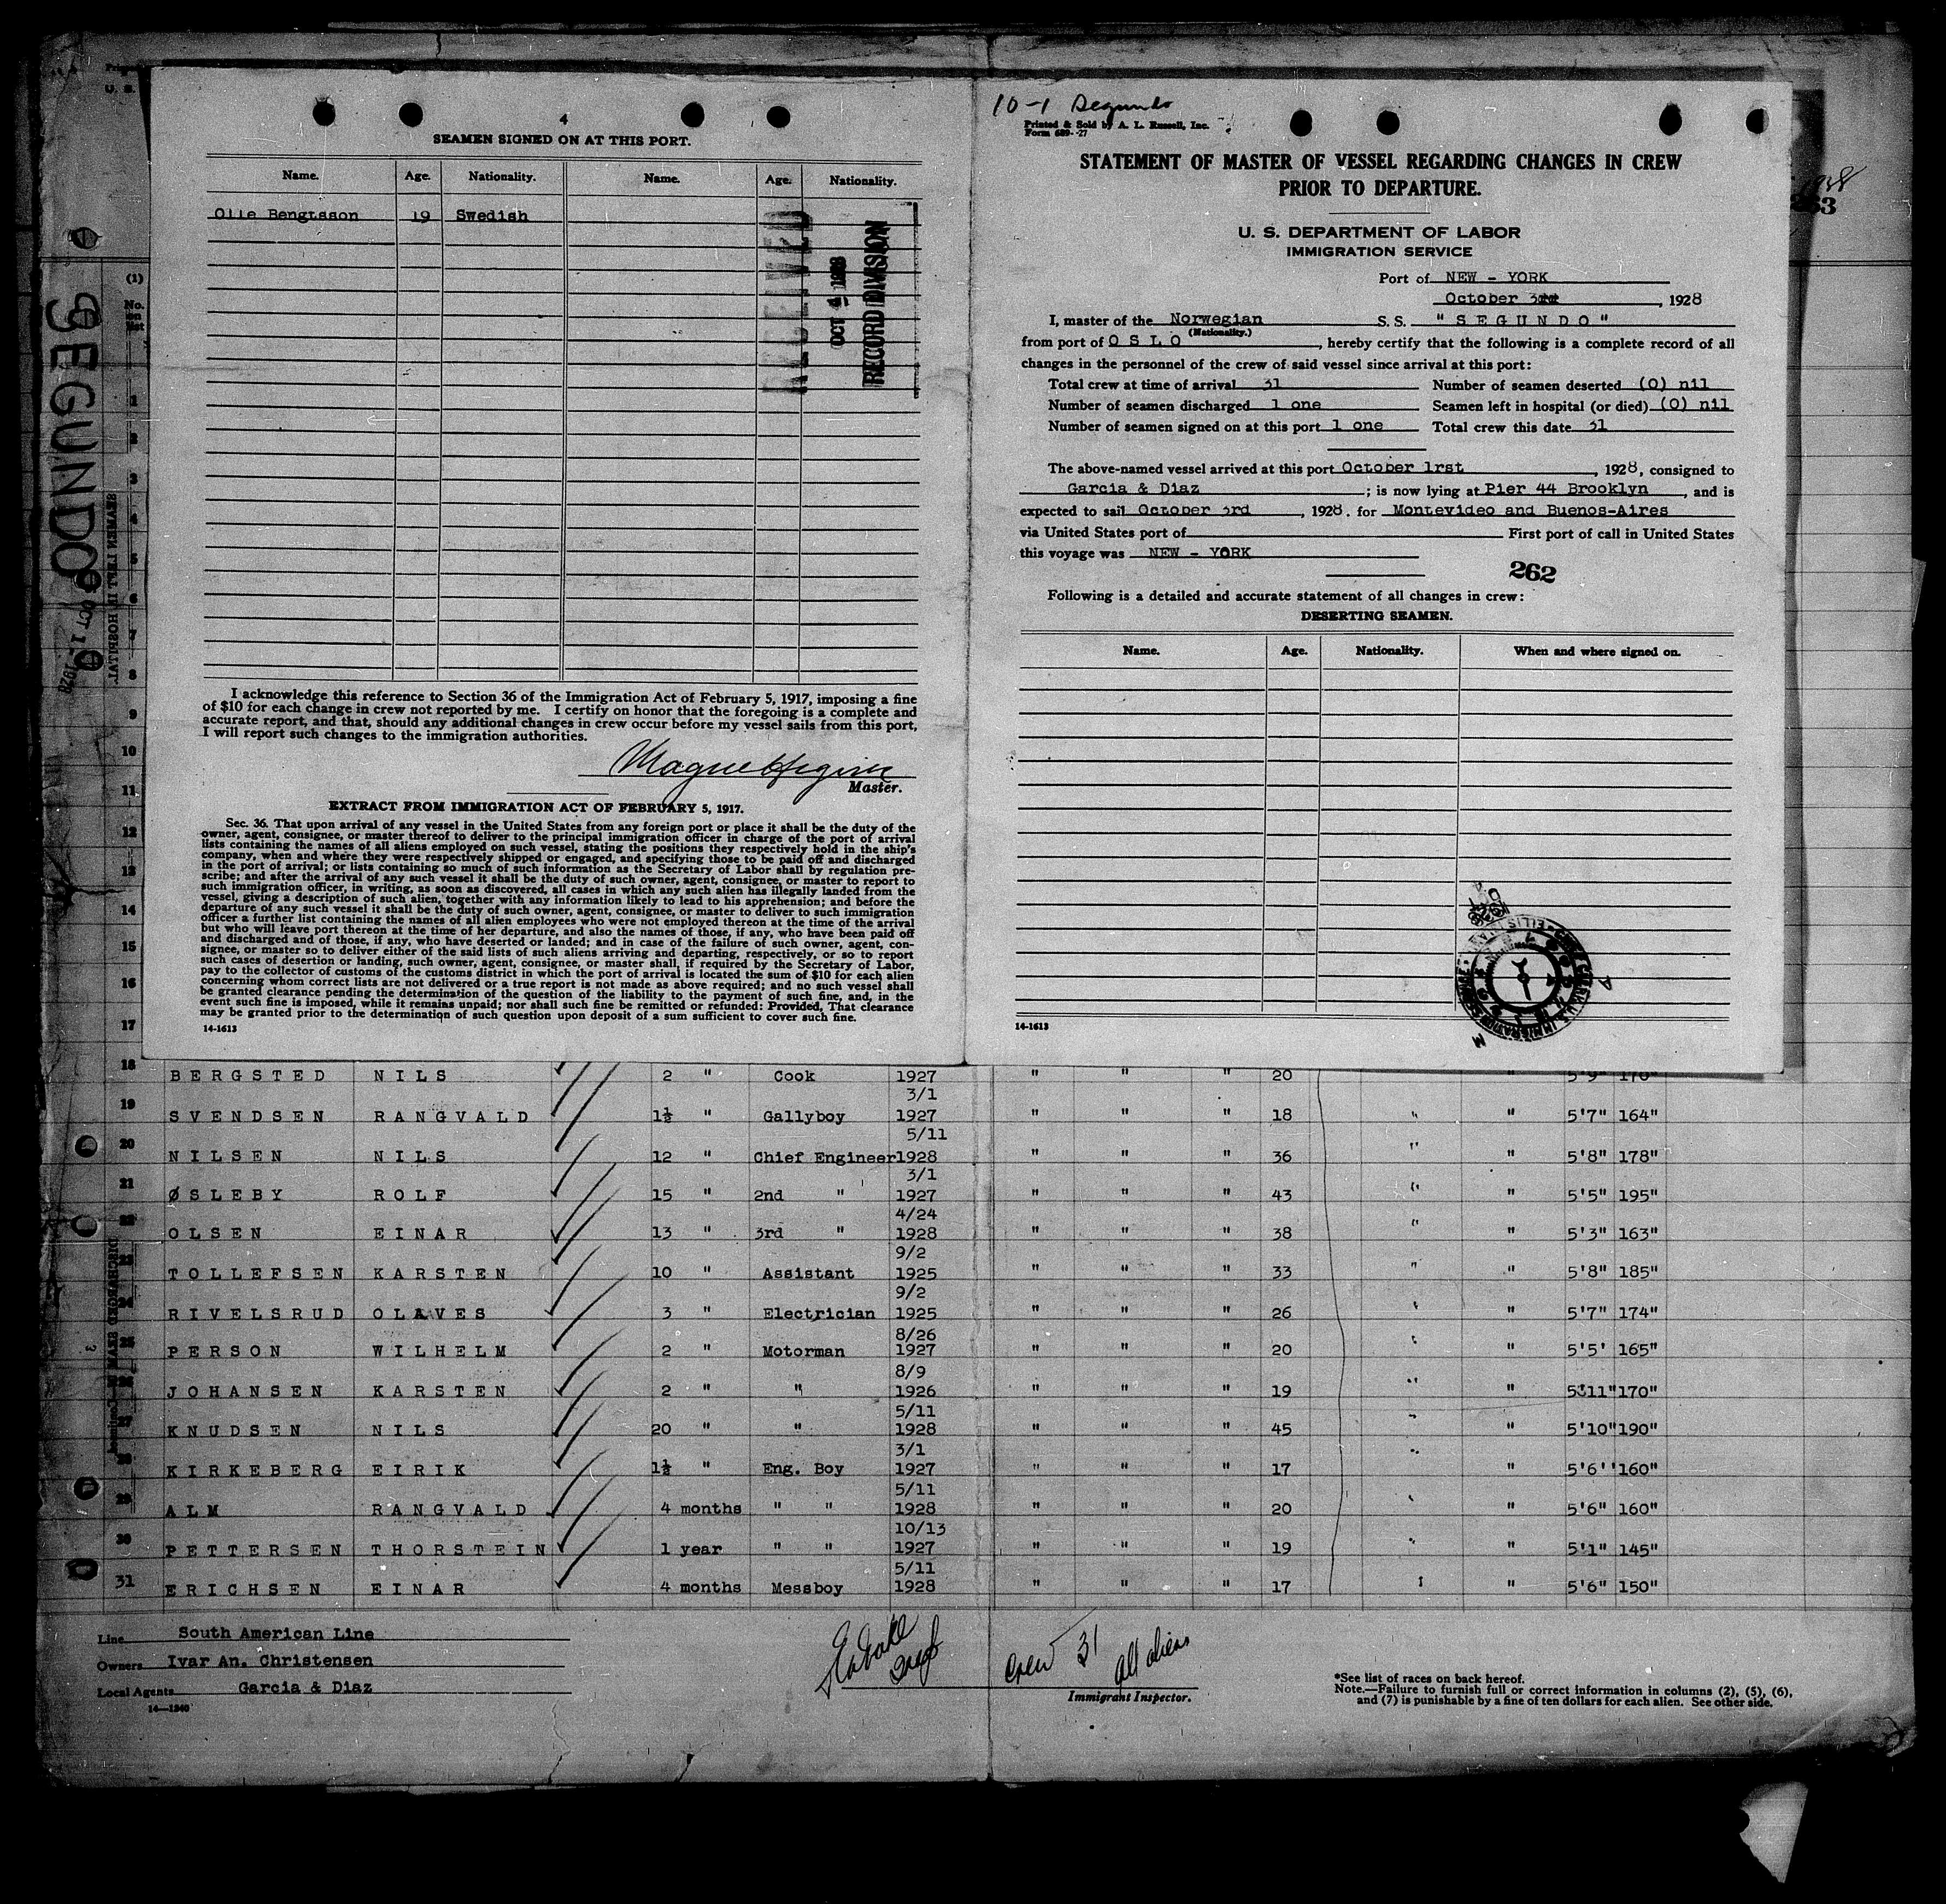 4
SEAMEN SIGNED ON AT THIS PORT.
Name. Age. Nationality. Name. Age. Nationality.
Olle Bengtsson 19 Swedish
RECEIVED
OCT 4 1928
RECORD DIVISION
I acknowledge this reference to Section 36 of the Immigration Act of February 5, 1917, imposing a fine
of $10 for each change in crew not reported by me. I certify on honor that the foregoing is a complete and
accurate report, and that, should any additional changes in crew occur before my vessel sails from this port,
I will report such changes to the immigration authorities.
Master.
EXTRACT FROM IMMIGRATION ACT OF FEBRUARY 5, 1917.
Sec. 36. That upon arrival of any vessel in the United States from any foreign port or place it shall be the duty of the
owner, agent, consignee, or master thereof to deliver to the principal immigration officer in charge of the port of arrival
lists containing the names of all aliens employed on such vessel, stating the positions they respectively hold in the ship's
company, when and where they were respectively shipped or engaged, and specifying those to be paid off and discharged
in the port of arrival; or lists containing so much of such information as the Secretary of Labor shall by regulation pre-
scribe; and after the arrival of any such vessel it shall be the duty of such owner, agent, consignee, or master to report to
such immigration officer, in writing, as soon as discovered, all cases in which any such alien has illegally landed from the
vessel, giving a description of such alien, together with any information likely to lead to his apprehension; and before the
departure of any such vessel it shall be the duty of such owner, agent, consignee, or master to deliver to such immigration
officer a further list containing the names of all alien employees who were not employed thereon at the time of the arrival
but who will leave port thereon at the time of her departure, and also the names of those, if any, who have been paid off
and discharged and of those, if any, who have deserted or landed; and in case of the failure of such owner, agent, con-
signee, or master so to deliver either of the said lists of such aliens arriving and departing, respectively, or so to report
such cases of desertion or landing, such owner, agent, consignee, or master shall, if required by the Secretary of Labor,
pay to the collector of customs of the customs district in which the port of arrival is located the sum of $10 for each alien
concerning whom correct lists are not delivered or a true report is not made as above required; and no such vessel shall
be granted clearance pending the determination of the question of the liability to the payment of such fine, and, in the
event such fine is imposed, while it remains unpaid; nor shall such fine be remitted or refunded: Provided, That clearance
may be granted prior to the determination of such question upon deposit of a sum sufficient to cover such fine.
14-1613
10-1 Segundo
Printed & Sold by A. L. Russell, Inc.
Form 689-'27
STATEMENT OF MASTER OF VESSEL REGARDING CHANGES IN CREW
PRIOR TO DEPARTURE.
U. S. DEPARTMENT OF LABOR
IMMIGRATION SERVICE
Port of NEW - YORK
October 3rd, 1928
I, master of the Norwegian S.S. "SEGUNDO"
(Nationality.)
from port of OSLO, hereby certify that the following is a complete record of all
changes in the personnel of the crew of said vessel since arrival at this port:
Total crew at time of arrival 31 Number of seamen deserted (0) nil
Number of seamen discharged 1 one Seamen left in hospital (or died) (0) nil
Number of seamen signed on at this port 1 one Total crew this date 31
The above-named vessel arrived at this port October 1rst, 1928, consigned to
Garcia & Diaz; is now lying at Pier 44 Brooklyn, and is
expected to sail October 3rd, 1928. for Montevideo and Buenos-Aires
via United States port of First port of call in United States
this voyage was NEW - YORK
262
Following is a detailed and accurate statement of all changes in crew:
DESERTING SEAMEN.
Name. Age. Nationality. When and where signed on.
14-1613
263
SEGUNDO
OCT 1 - 1928
(1)
No. on list
1
2
3
4
5
6
7
8
9
10
11
12
13
14
15
16
17
18 BERGSTED NILS 2 " Cook 1927 " " " 20 " 5'9" 170"
19 SVENDSEN RANGVALD 1½ " Gallyboy 3/1 1927 " " " 18 " " 5'7" 164"
20 NILSEN NILS 12 " Chief Engineer 5/11 1928 " " " 36 " " 5'8" 178"
21 ØSLEBY ROLF 15 " 2nd " 3/1 1927 " " " 43 " " 5'5" 195"
22 OLSEN EINAR 13 " 3rd " 4/24 1928 " " " 38 " " 5'3" 163"
23 TOLLEFSEN KARSTEN 10 " Assistant 9/2 1925 " " " 33 " " 5'8" 185"
24 RIVELSRUD OLAVES 3 " Electrician 9/2 1925 " " " 26 " " 5'7" 174"
25 PERSON WILHELM 2 " Motorman 8/26 1927 " " " 20 " " 5'5' 165"
26 JOHANSEN KARSTEN 2 " " 8/9 1926 " " " 19 " " 5'11" 170"
27 KNUDSEN NILS 20 " " 5/11 1928 " " " 45 " " 5'10" 190"
28 KIRKEBERG EIRIK 1½ " Eng. Boy 3/1 1927 " " " 17 " " 5'6'' 160"
29 ALM RANGVALD 4 months " " 5/11 1928 " " " 20 " " 5'6" 160"
30 PETTERSEN THORSTEIN 1 year " " 10/13 1927 " " " 19 " " 5'1" 145"
31 ERICHSEN EINAR 4 months Messboy 5/11 1928 " " " 17 " " 5'6" 150"
Line South American Line
Owners Ivar An. Christensen
Local Agents Garcia & Diaz
14-1240
Crew 31 all aliens
Immigrant Inspector.
*See list of races on back hereof.
Note.—Failure to furnish full or correct information in columns (2), (5), (6),
and (7) is punishable by a fine of ten dollars for each alien. See other side.